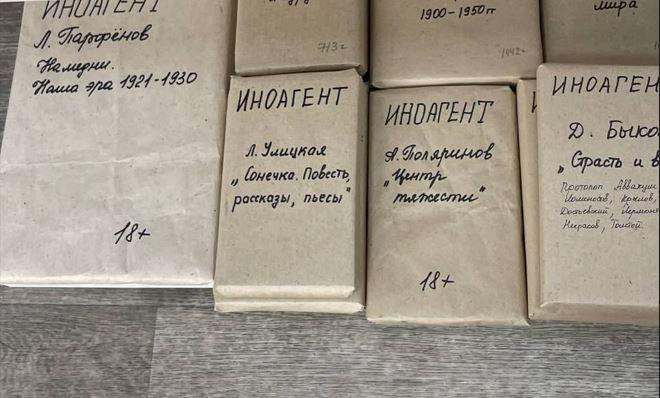 ИНОАГЕНТ
Л. Парфёнов
Намедни.
Наша эра 1921-1930
18+
713г
1900-1950гг
1442г
мира
ИНОАГЕНТ
Л. Улицкая
„Сонечка. Повесть,
рассказы, пьесы"
ИНОАГЕНТ
А. Поляринов
„Центр
тяжести"
18+
И
ИНОАГЕН
Д. Быко
„Страсть и в
Протопоп Аввакум
Ломоносов, Крылов,
Достоевский, Лермон
Некрасов, Толстой.